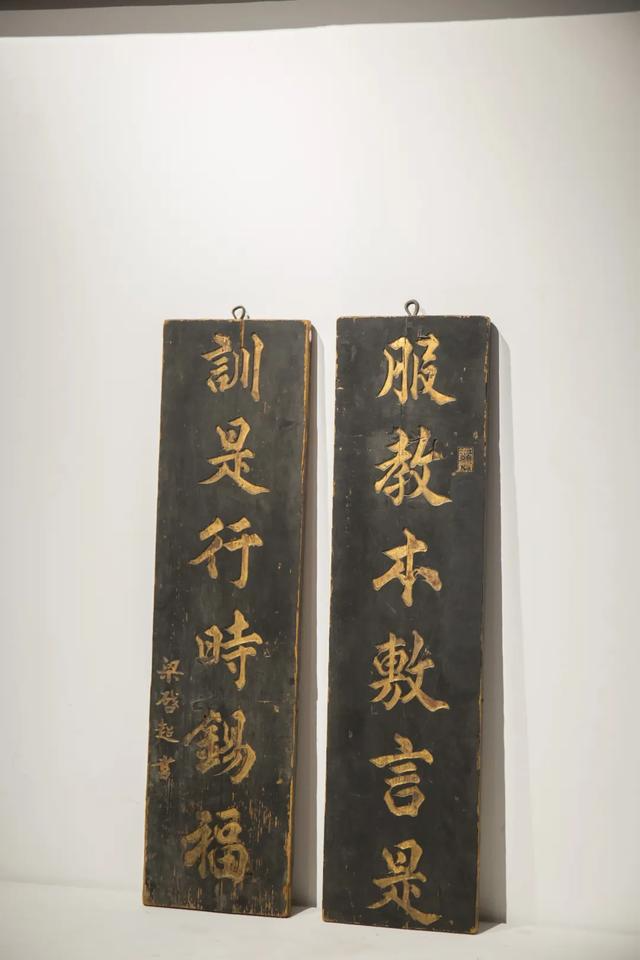 服教本敷言是
訓是行時錫福
梁啓超書